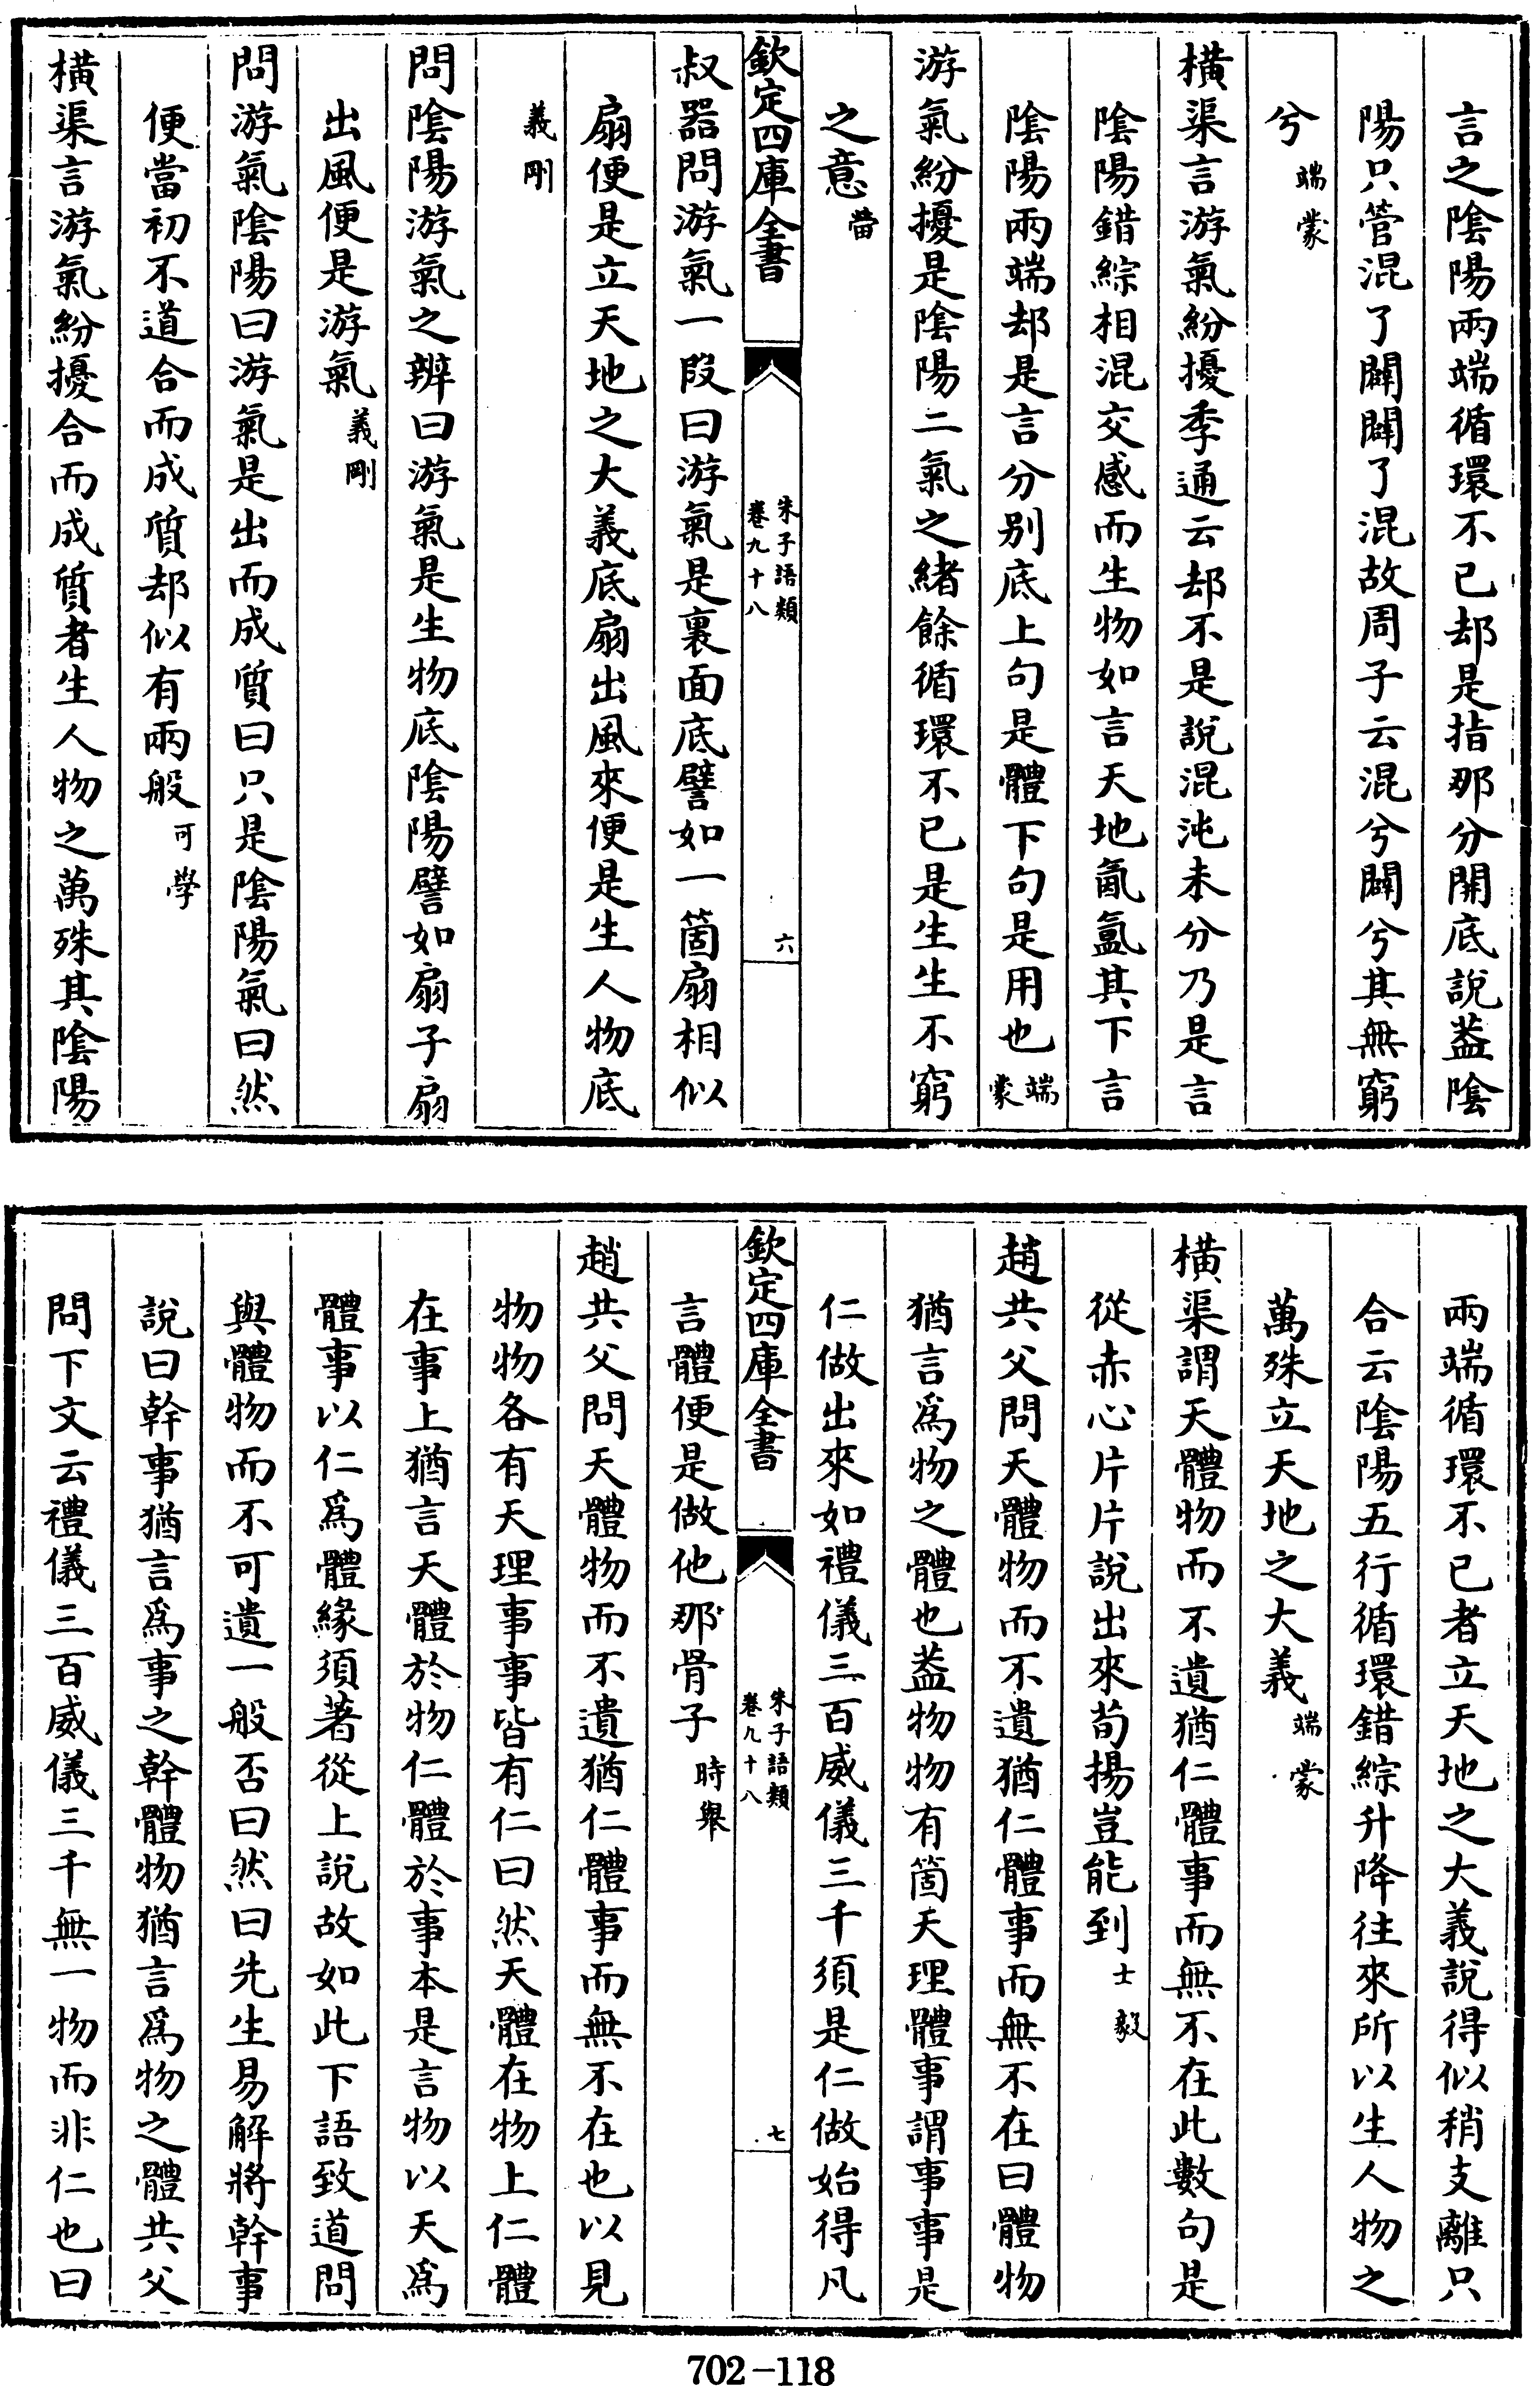 言之陰陽兩端循環不已却是指那分開底說葢陰
陽只管混了闢闢了混故周子云混兮闢兮其無窮
兮端蒙
橫渠言游氣紛擾季通云却不是說混沌未分乃是言
陰陽錯綜相混交感而生物如言天地氤氲其下言
陰陽兩端却是言分别底上句是體下句是用也端蒙
游氣紛擾是陰陽二氣之緒餘循環不已是生生不窮
之意㽦
欽定四庫全書
朱子語類
卷九十八
六
叔器問游氣一段曰游氣是裏面底譬如一箇扇相似
扇便是立天地之大義底扇出風來便是生人物底
義剛
問陰陽游氣之辨曰游氣是生物底陰陽譬如扇子扇
出風便是游氣義剛
問游氣陰陽曰游氣是出而成質曰只是陰陽氣曰然
便當初不道合而成質却似有兩般可學
橫渠言游氣紛擾合而成質者生人物之萬殊其陰陽
兩端循環不已者立天地之大義說得似稍支離只
合云陰陽五行循環錯綜升降往來所以生人物之
萬殊立天地之大義端蒙
橫渠謂天體物而不遺猶仁體事而無不在此數句是
從赤心片片說出來荀揚豈能到士毅
趙共父問天體物而不遺猶仁體事而無不在曰體物
猶言爲物之體也葢物物有箇天理體事謂事事是
仁做出來如禮儀三百威儀三千須是仁做始得凡
欽定四庫全書
朱子語類
卷九十八
七
言體便是做他那骨子時舉
趙共父問天體物而不遺猶仁體事而無不在也以見
物物各有天理事事皆有仁曰然天體在物上仁體
在事上猶言天體於物仁體於事本是言物以天爲
體事以仁爲體緣須著從上說故如此下語致道問
與體物而不可遺一般否曰然曰先生易解將幹事
說曰幹事猶言爲事之幹體物猶言爲物之體共父
問下文云禮儀三百威儀三千無一物而非仁也曰
702-118